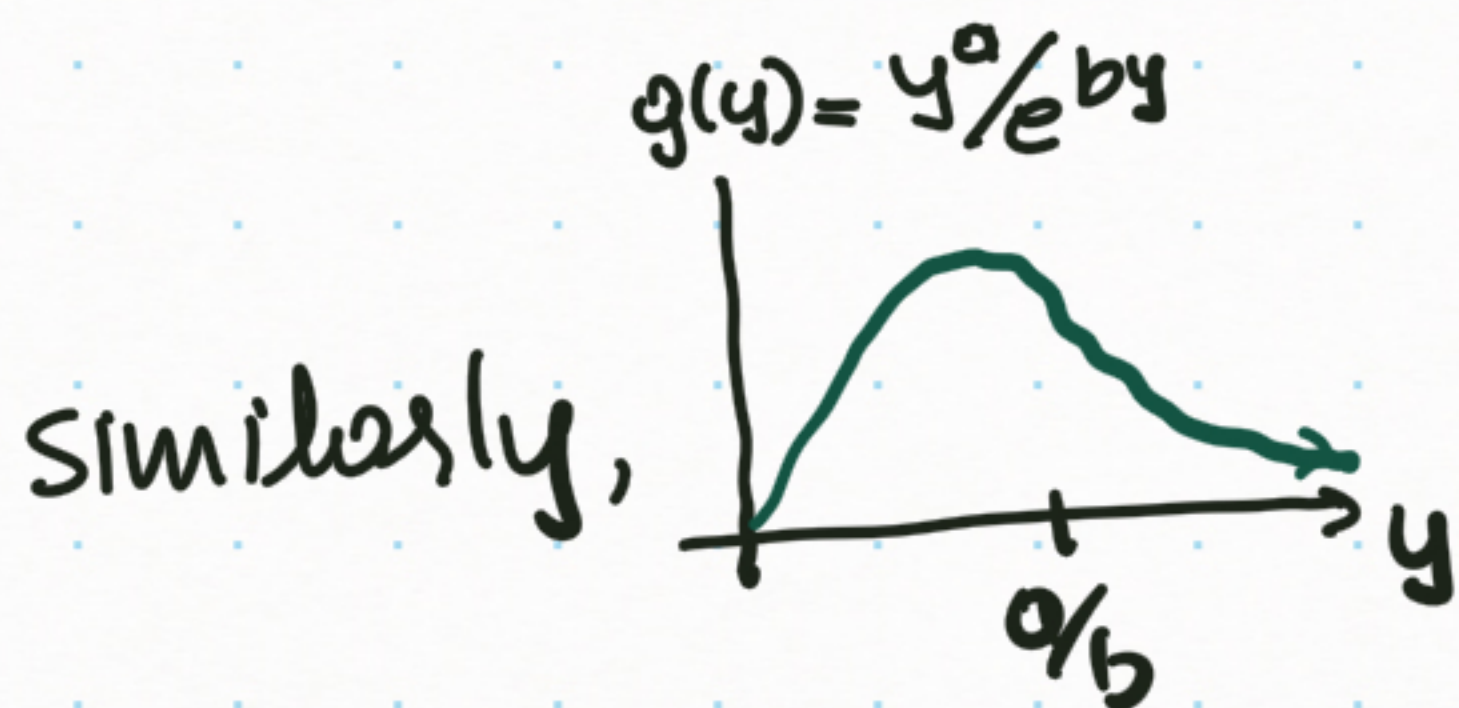 g(y) = y^a/e^by
similarly,
y
a/b